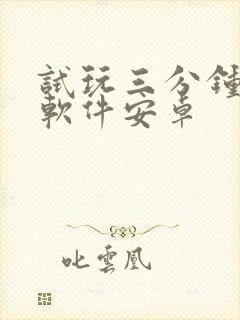 試玩三分鐘
軟件安卓
叱雲凰